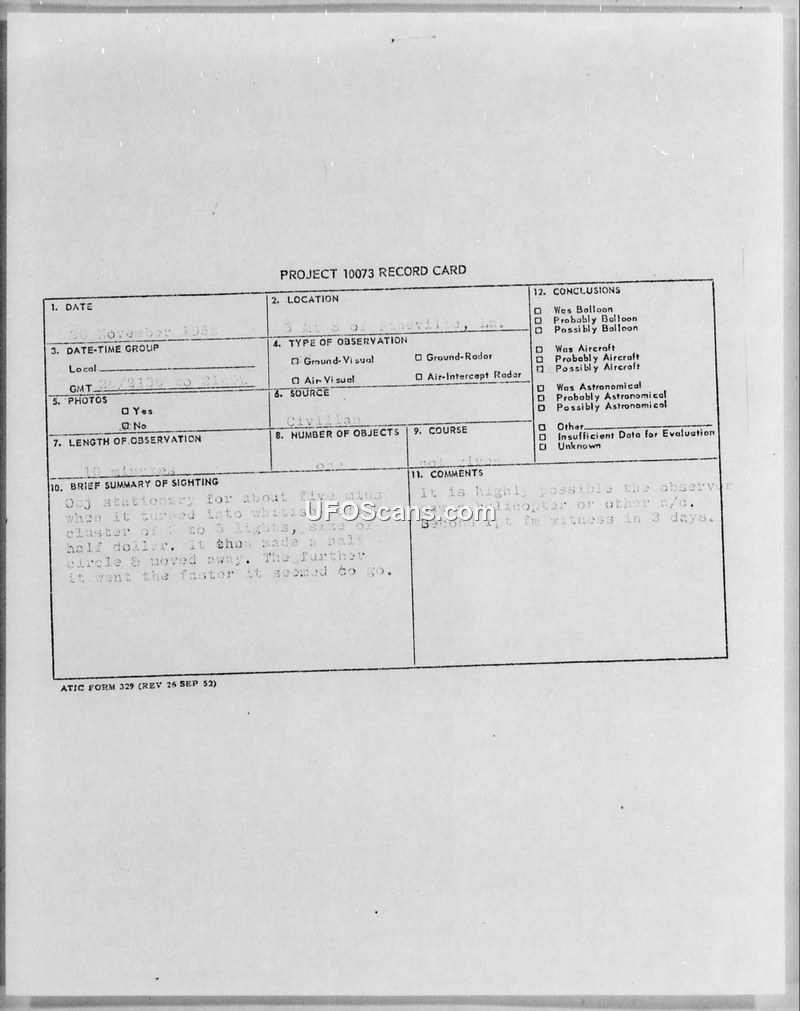 PROJECT 10073 RECORD CARD
1. DATE
20 November 195
2. LOCATION
5 mi S of , La.
3. DATE-TIME GROUP
Local
GMT 20/2130 to
4. TYPE OF OBSERVATION
Ground-Visual
Ground-Radar
Air-Visual
Air-Intercept Radar
5. PHOTOS
Yes
No
6. SOURCE
Civilian
7. LENGTH OF OBSERVATION
10 minutes
8. NUMBER OF OBJECTS
one
9. COURSE
not given
10. BRIEF SUMMARY OF SIGHTING
Obj stationary for about five mins
when it turned into
cluster of to 5 lights, size of
half doller. It then made a half
circle & moved away. The further
it went the faster it seemed to go.
11. COMMENTS
It is highly possible the observer
or other a/c.
witness in 3 days.
12. CONCLUSIONS
Was Balloon
Probably Balloon
Possibly Balloon
Was Aircraft
Probably Aircraft
Possibly Aircraft
Was Astronomical
Probably Astronomical
Possibly Astronomical
Other
Insufficient Data for Evaluation
Unknown
UFOScans.com
ATIC FORM 329 (REV 26 SEP 52)